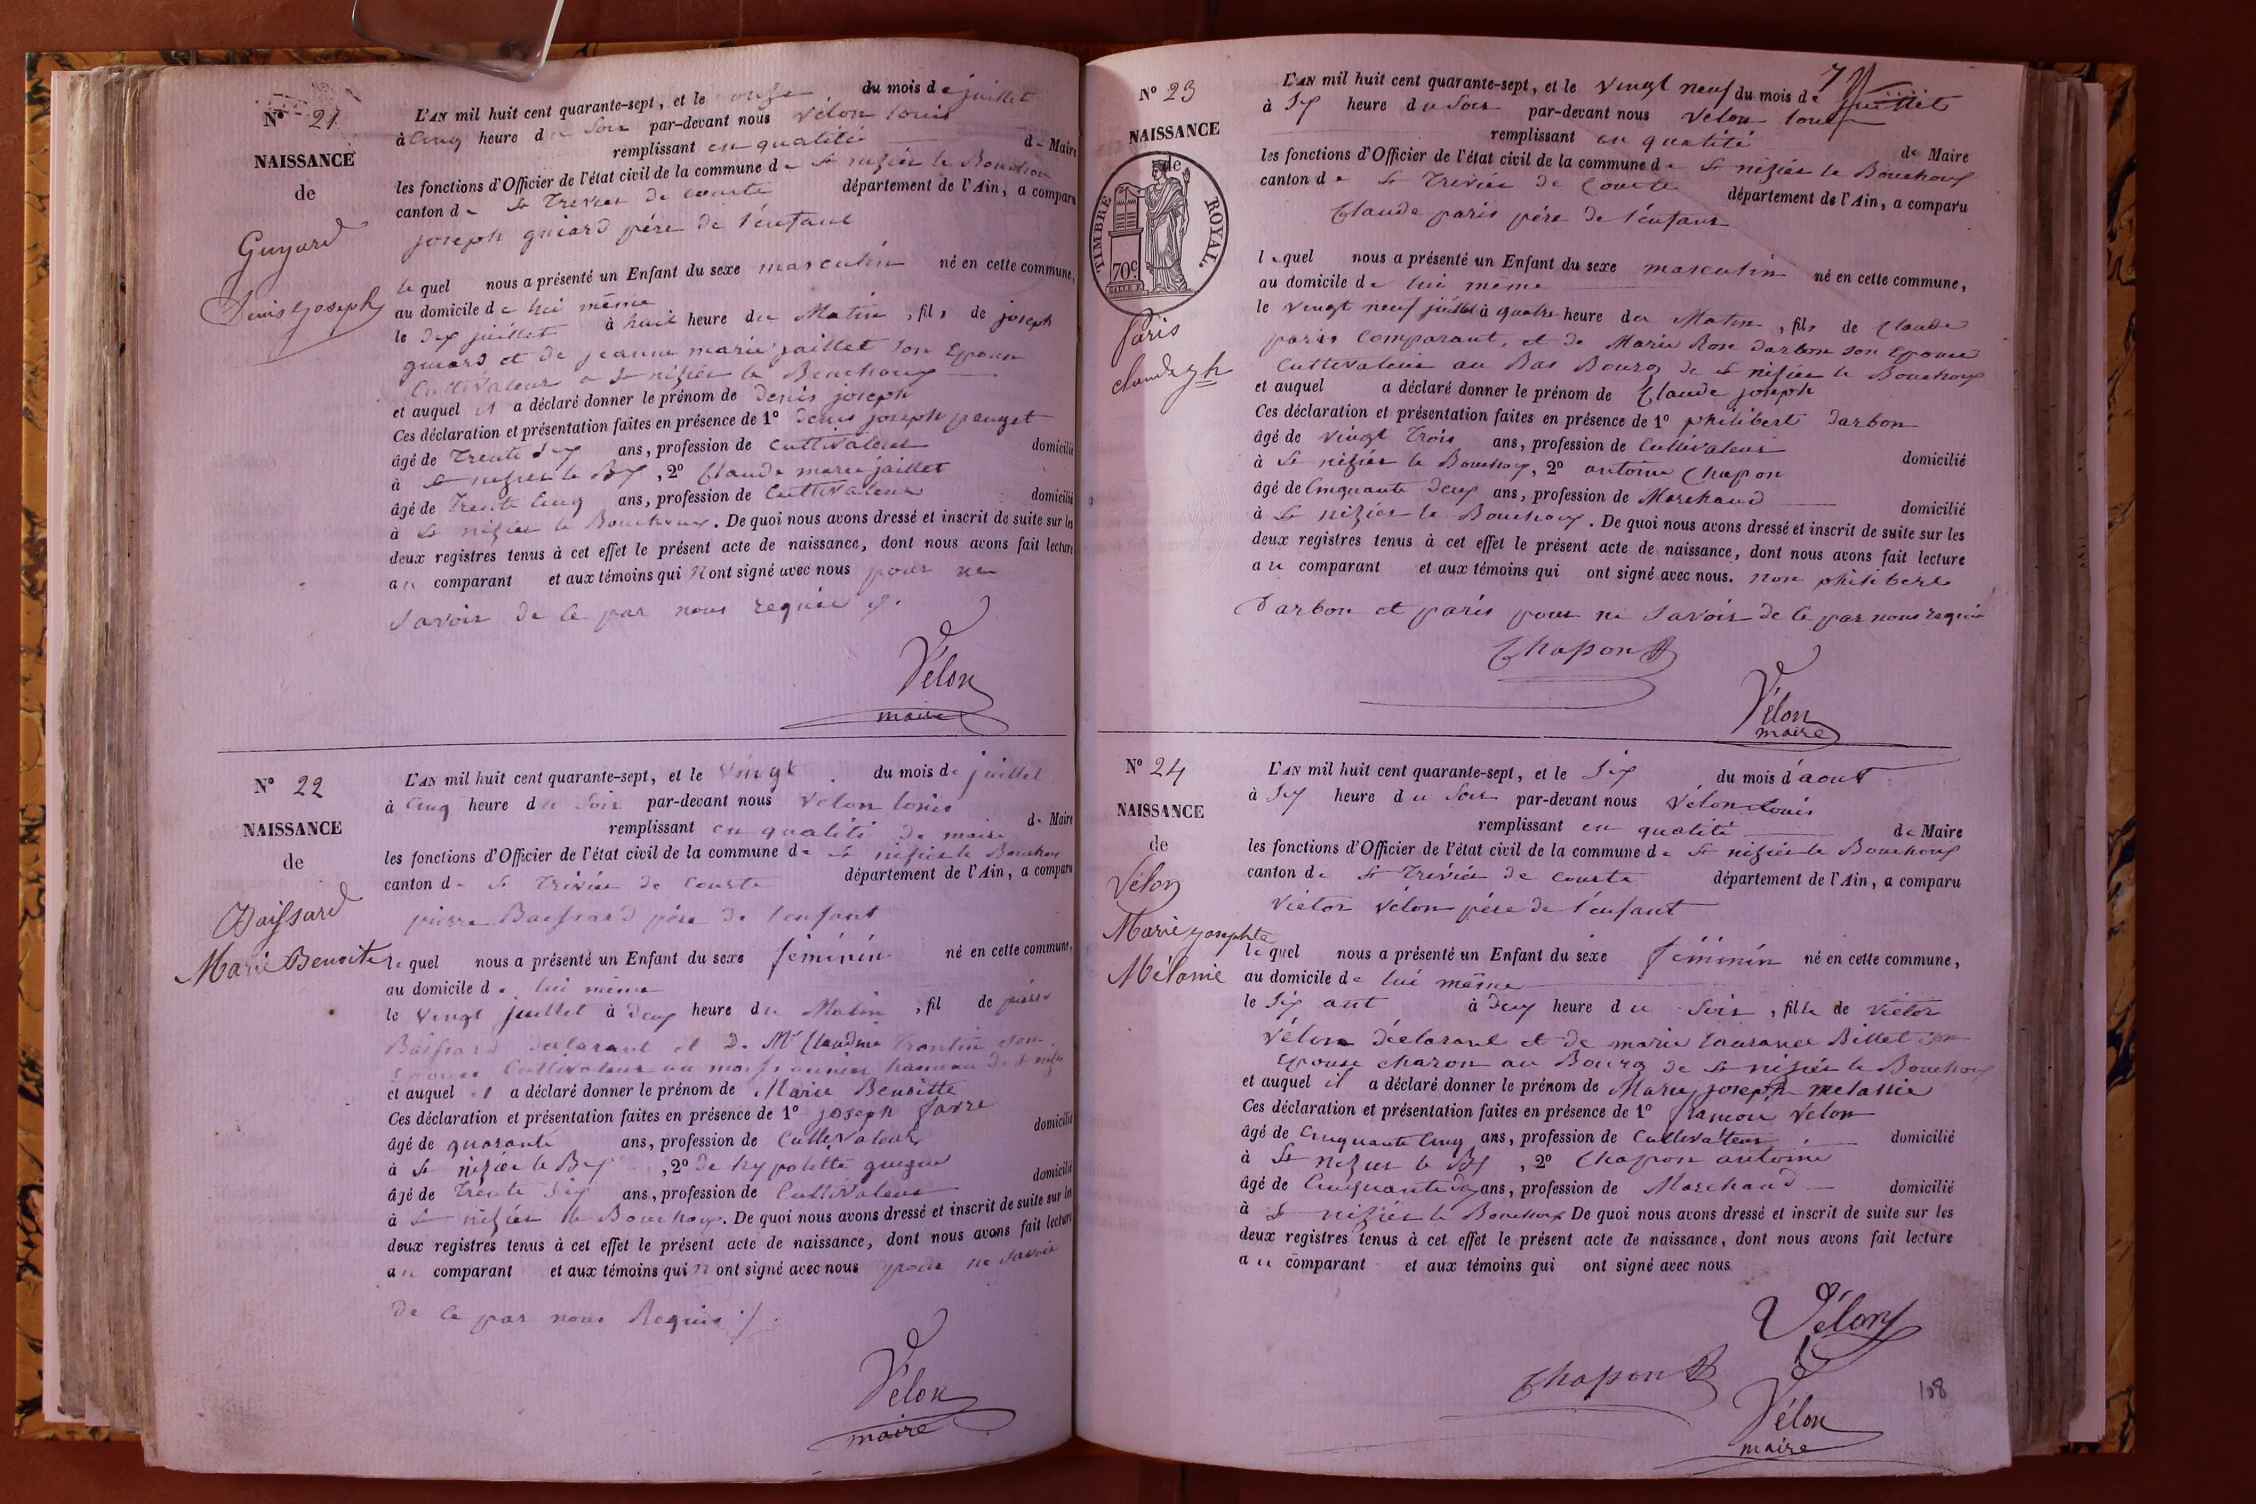 N° 21
NAISSANCE
de
Guyard
Denis joseph
L'AN mil huit cent quarante-sept, et le onze du mois de juillet
à Cinq heure du Soir par-devant nous Vélon Louis
remplissant en qualité de Maire
les fonctions d'Officier de l'état civil de la commune de St nizier le Bouchoux
canton de St Trivier de courte département de l'Ain, a comparu
joseph guiard père de l'enfant
lequel nous a présenté un Enfant du sexe masculin né en cette commune,
au domicile de lui même
le dix juillet à huit heure du Matin, fils de joseph
guiard et de jeanne marie jaillet son Epouse
Cultivateur a St nizier le Bouchoux
et auquel il a déclaré donner le prénom de denis joseph
Ces déclaration et présentation faites en présence de 1° denis joseph
âgé de Trente ans, profession de Cultivateur domicilié
à St nizier le Bx, 2° Claude marie jaillet
âgé de Trente Cinq ans, profession de Cultivateur domicilié
à St nizier le Bouchoux. De quoi nous avons dressé et inscrit de suite sur les
deux registres tenus à cet effet le présent acte de naissance, dont nous avons fait lecture
au comparant et aux témoins qui n'ont signé avec nous pour ne
Savoir de ce par nous requis
Vélon
maire
N° 22
NAISSANCE
de
Baissard
Marie Benoite
L'AN mil huit cent quarante-sept, et le vingt du mois de juillet
à Cinq heure du Soir par-devant nous Vélon Louis
remplissant en qualité de maire de Maire
les fonctions d'Officier de l'état civil de la commune de St nizier le Bouchoux
canton de St Trivier de Courte département de l'Ain, a comparu
pierre Baissard père de l'enfant
lequel nous a présenté un Enfant du sexe féminin né en cette commune,
au domicile de lui même
le vingt juillet à deux heure du Matin, fil de pierre
Baissard déclarant et de Mie Claudine son
Epouse Cultivateur au hameau de St nizier
et auquel il a déclaré donner le prénom de Marie Benoitte
Ces déclaration et présentation faites en présence de 1° joseph favre
âgé de quarante ans, profession de Cultivateur domicilié
à St nizier le Bx, 2° de hypolitte
âgé de Trente Six ans, profession de Cultivateur domicilié
à St nizier le Bouchoux. De quoi nous avons dressé et inscrit de suite sur les
deux registres tenus à cet effet le présent acte de naissance, dont nous avons fait lecture
au comparant et aux témoins qui n'ont signé avec nous pour ne Savoir
de ce par nous Requis
Vélon
maire
N° 23
NAISSANCE
de
TIMBRE ROYAL.
70c
Paris
claude jh
L'AN mil huit cent quarante-sept, et le vingt neuf du mois de juillet
à Six heure du Soir par-devant nous Vélon Louis
remplissant en qualité de Maire
les fonctions d'Officier de l'état civil de la commune de St nizier le Bouchoux
canton de St Trivier de Courte département de l'Ain, a comparu
Claude paris père de l'enfant
lequel nous a présenté un Enfant du sexe masculin né en cette commune,
au domicile de lui même
le vingt neuf juillet à quatre heure du Matin, fils de Claude
paris Comparant, et de Marie Rose darbon son Epouse
Cultivateur au Bas Bourg de St nizier le Bouchoux
et auquel a déclaré donner le prénom de Claude joseph
Ces déclaration et présentation faites en présence de 1° philibert darbon
âgé de vingt Trois ans, profession de Cultivateur domicilié
à St nizier le Bouchoux, 2° antoine Chapon
âgé de Cinquante deux ans, profession de Marchand domicilié
à St nizier le Bouchoux. De quoi nous avons dressé et inscrit de suite sur les
deux registres tenus à cet effet le présent acte de naissance, dont nous avons fait lecture
au comparant et aux témoins qui ont signé avec nous. non philibert
Darbon et paris pour ne Savoir de ce par nous requis
Chapon
Vélon
maire
N° 24
NAISSANCE
de
Vélon
Marie josephte
Mélanie
L'AN mil huit cent quarante-sept, et le Six du mois d'août
à Six heure du Soir par-devant nous Vélon Louis
remplissant en qualité de Maire
les fonctions d'Officier de l'état civil de la commune de St nizier le Bouchoux
canton de St Trivier de courte département de l'Ain, a comparu
Victor Vélon père de l'enfant
lequel nous a présenté un Enfant du sexe féminin né en cette commune,
au domicile de lui même
le Six aut à deux heure du Soir, fille de Victor
Vélon déclarant et de marie Laurance Billet son
Epouse charon au Bourg de St nizier le Bouchoux
et auquel il a déclaré donner le prénom de Marie joseph melanie
Ces déclaration et présentation faites en présence de 1° francois Vélon
âgé de Cinquante Cinq ans, profession de Cultivateur domicilié
à St nizier le Bx, 2° Chapon antoine
âgé de Cinquante dx ans, profession de Marchand domicilié
à St nizier le Bouchoux De quoi nous avons dressé et inscrit de suite sur les
deux registres tenus à cet effet le présent acte de naissance, dont nous avons fait lecture
au comparant et aux témoins qui ont signé avec nous
Vélon
Chapon
Vélon
maire
108